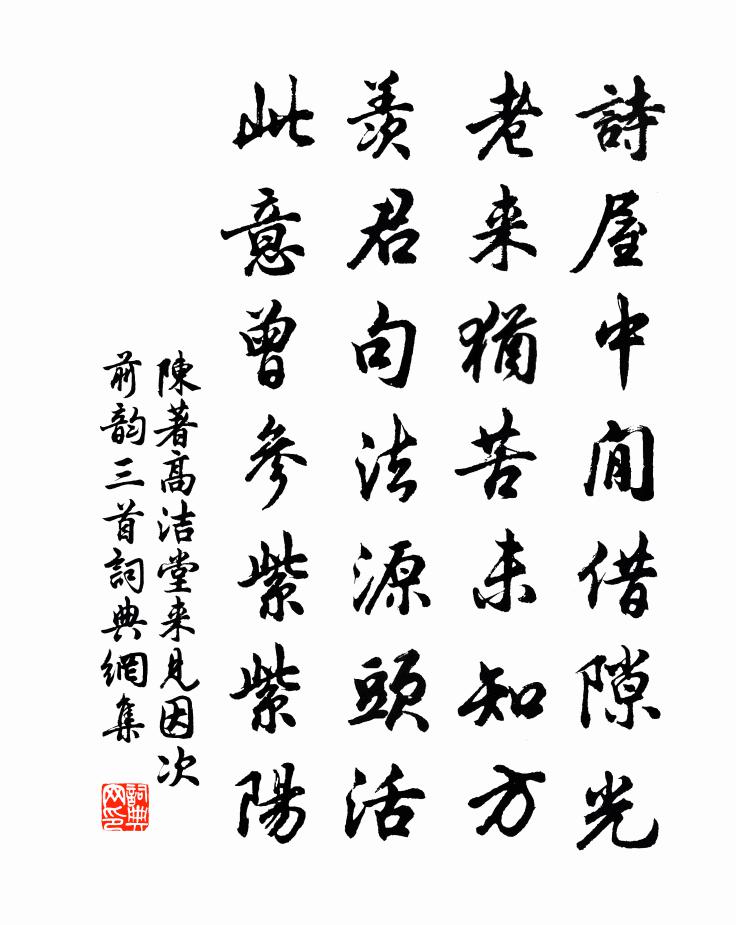 詩屋中間借隙光
老来猶苦未知方
羨君句法源頭活
此意曾參紫紫陽
陳著高洁堂来見因次
前韵三首詞典網集
詞典网印